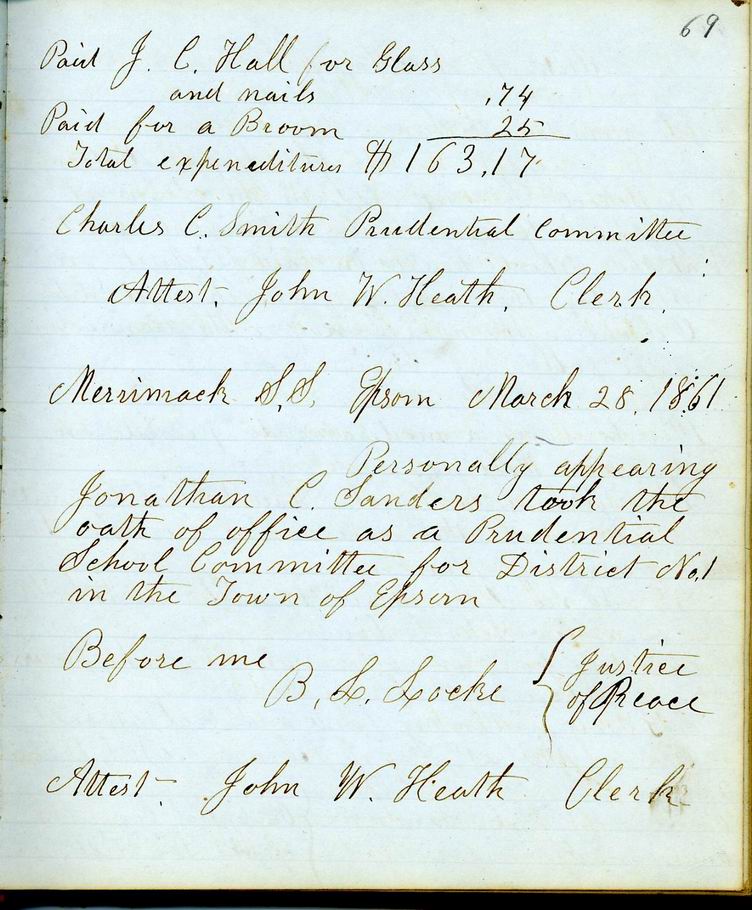 69
Paid J. C. Hall for Glass
and nails .74
Paid for a Broom 25
Total expenditures $163.17
Charles C. Smith Prudential Committee
Attest. John W. Heath. Clerk.
Merrimack S.S. Epsom March 28. 1861
Personally appearing
Jonathan C. Sanders took the
oath of office as a Prudential
School Committee for District No.1
in the Town of Epsom
Before me
B. L. Locke { Justice
of Peace
Attest. John W. Heath Clerk